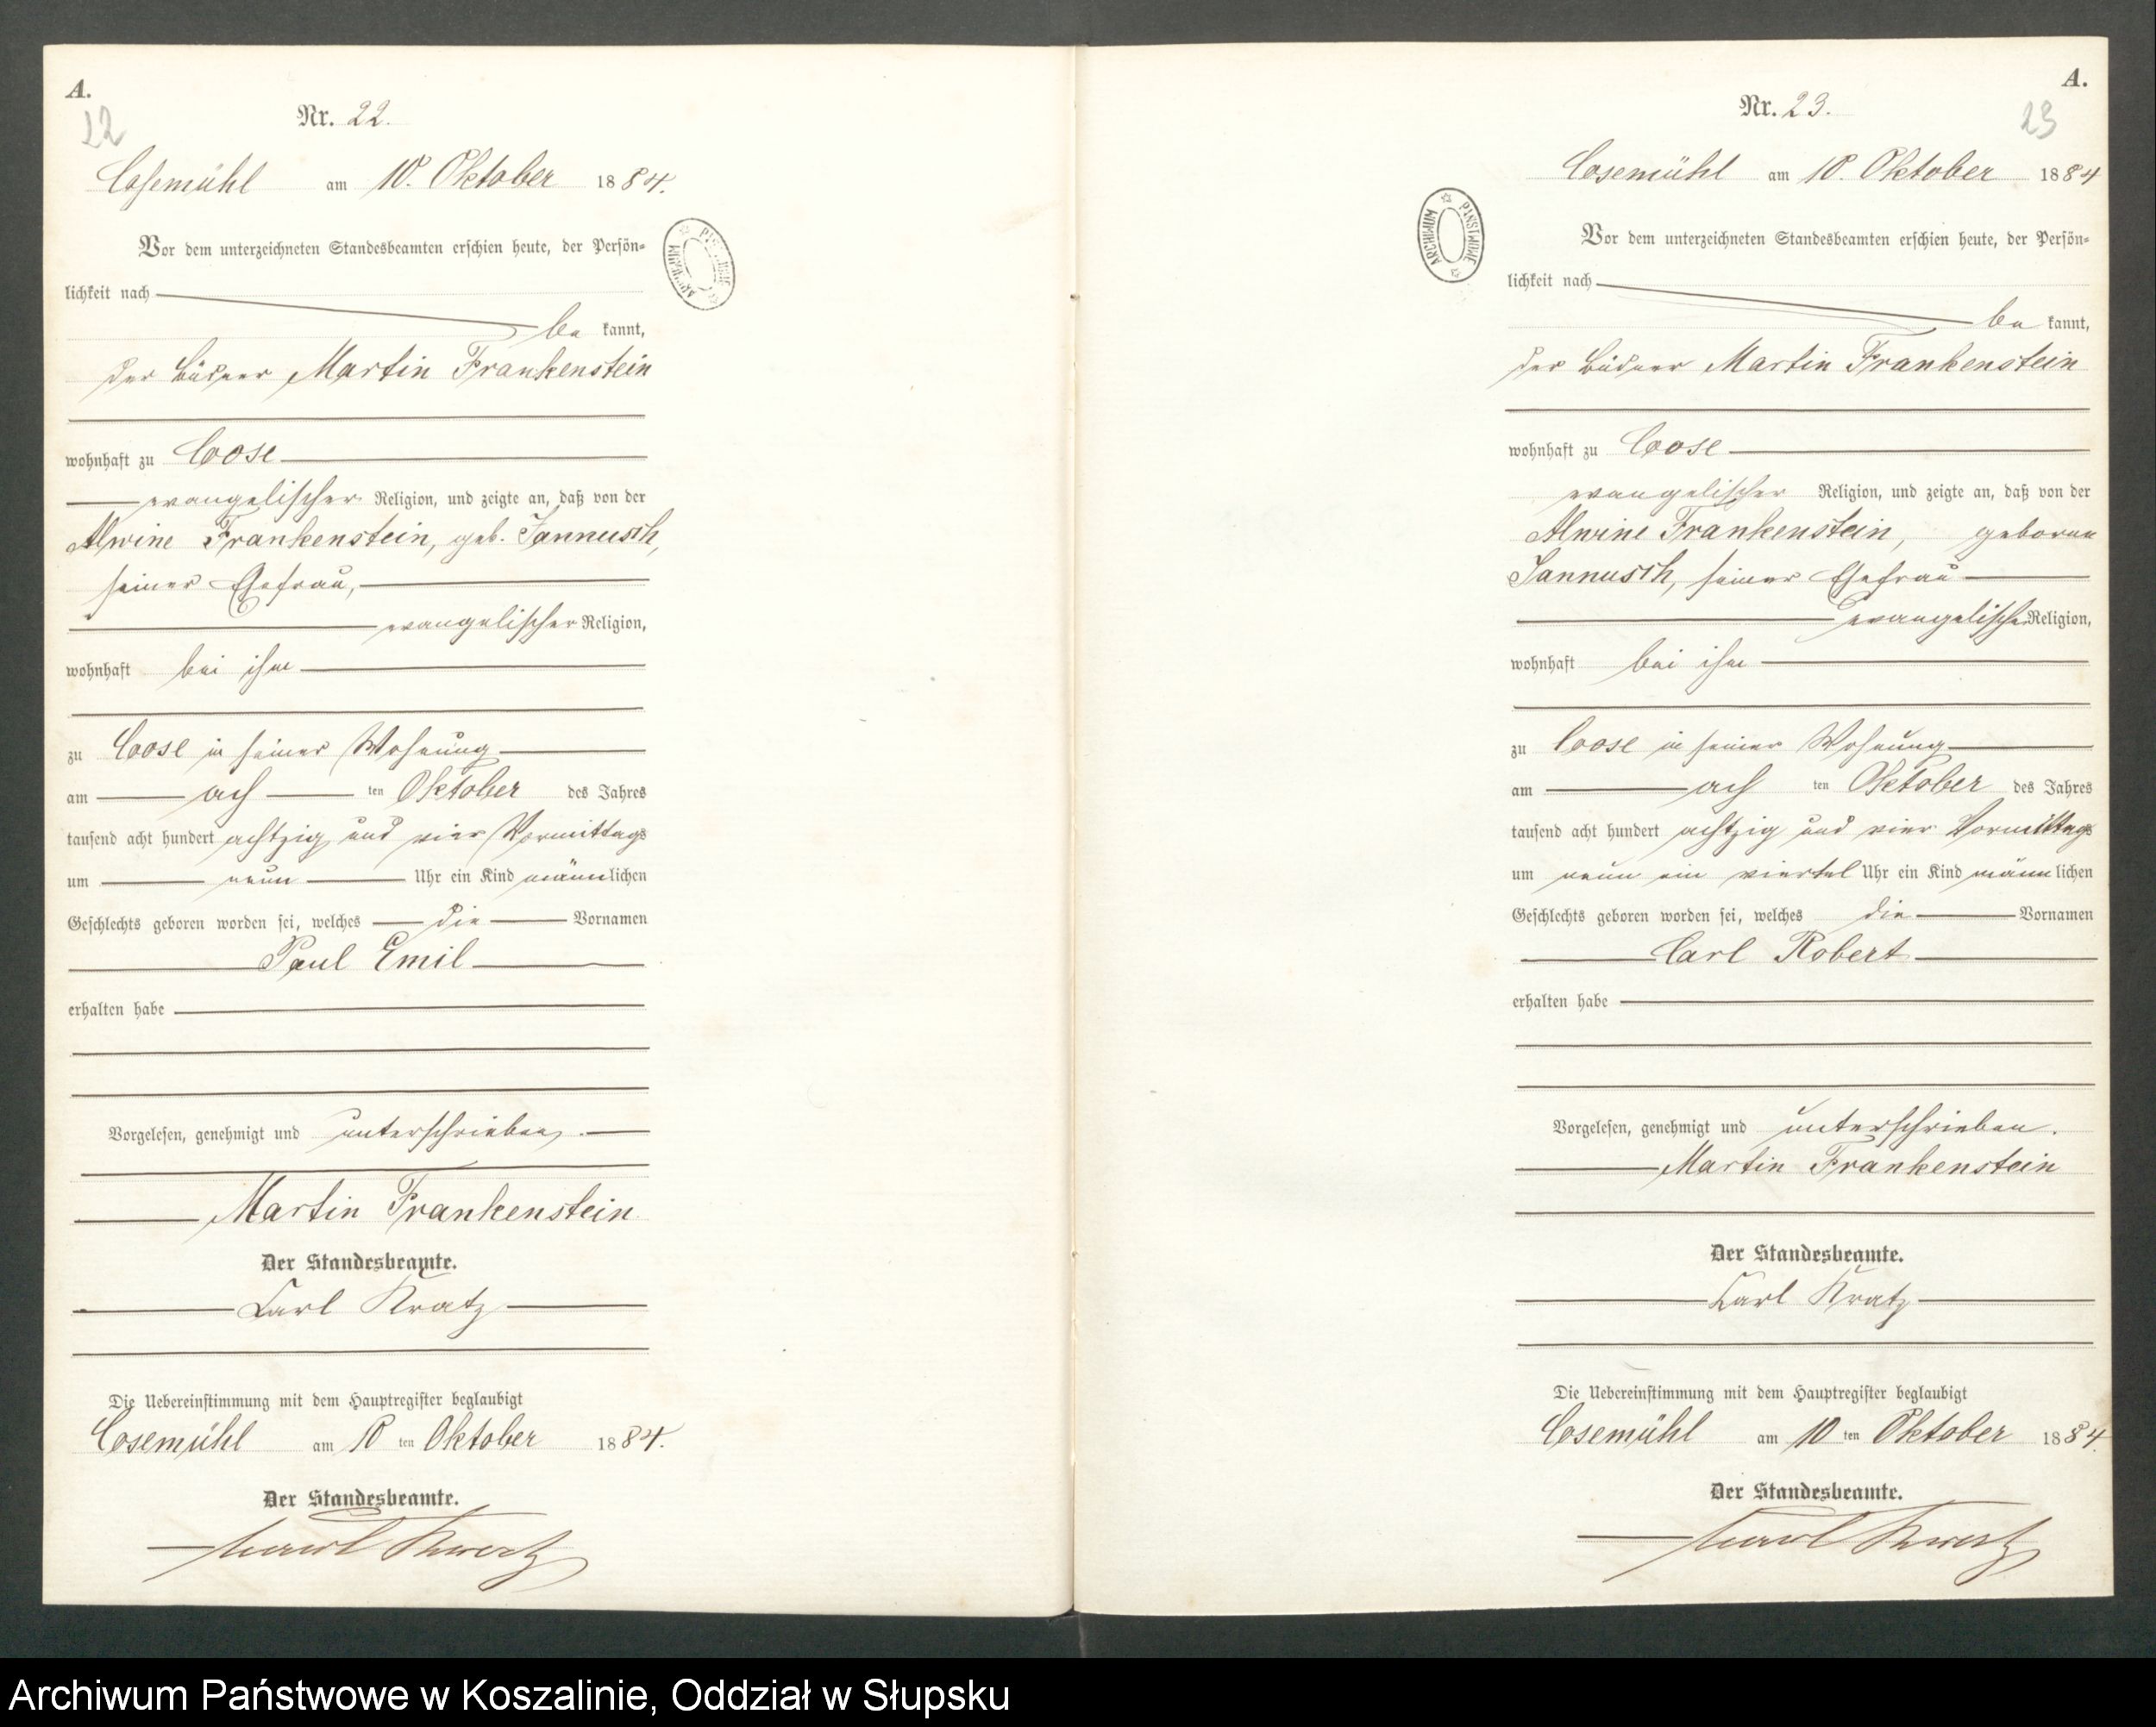 A.
22
Nr. 22.
Cosemühl am 10. Oktober 1884.
Vor dem unterzeichneten Standesbeamten erschien heute, der Persön=
lichkeit nach
be kannt,
der Büdner Martin Frankenstein
wohnhaft zu Coose
evangelischer Religion, und zeigte an, daß von der
Alwine Frankenstein, geb. Jannusch,
seiner Ehefrau,
evangelischer Religion,
wohnhaft bei ihm
zu Coose in seiner Wohnung
am ach ten Oktober des Jahres
tausend acht hundert achtzig und vier Vormittags
um neun Uhr ein Kind männlichen
Geschlechts geboren worden sei, welches die Vornamen
Paul Emil
erhalten habe
Vorgelesen, genehmigt und unterschrieben.
Martin Frankenstein
Der Standesbeamte.
Carl Kratz
Die Uebereinstimmung mit dem Hauptregister beglaubigt
Cosemühl am 10 ten Oktober 1884.
Der Standesbeamte.
Carl Kratz
ARCHIWUM PAŃSTWOWE
A.
23
Nr. 23.
Cosemühl am 10. Oktober 1884
Vor dem unterzeichneten Standesbeamten erschien heute, der Persön=
lichkeit nach
be kannt,
der Büdner Martin Frankenstein
wohnhaft zu Coose
evangelischer Religion, und zeigte an, daß von der
Alwine Frankenstein, geborene
Jannusch, seiner Ehefrau
evangelischer Religion,
wohnhaft bei ihm
zu Coose in seiner Wohnung
am ach ten Oktober des Jahres
tausend acht hundert achtzig und vier Vormittags
um neun ein viertel Uhr ein Kind männlichen
Geschlechts geboren worden sei, welches die Vornamen
Carl Robert
erhalten habe
Vorgelesen, genehmigt und unterschrieben.
Martin Frankenstein
Der Standesbeamte.
Carl Kratz
Die Uebereinstimmung mit dem Hauptregister beglaubigt
Cosemühl am 10 ten Oktober 1884.
Der Standesbeamte.
Carl Kratz
ARCHIWUM PAŃSTWOWE
Archiwum Państwowe w Koszalinie, Oddział w Słupsku